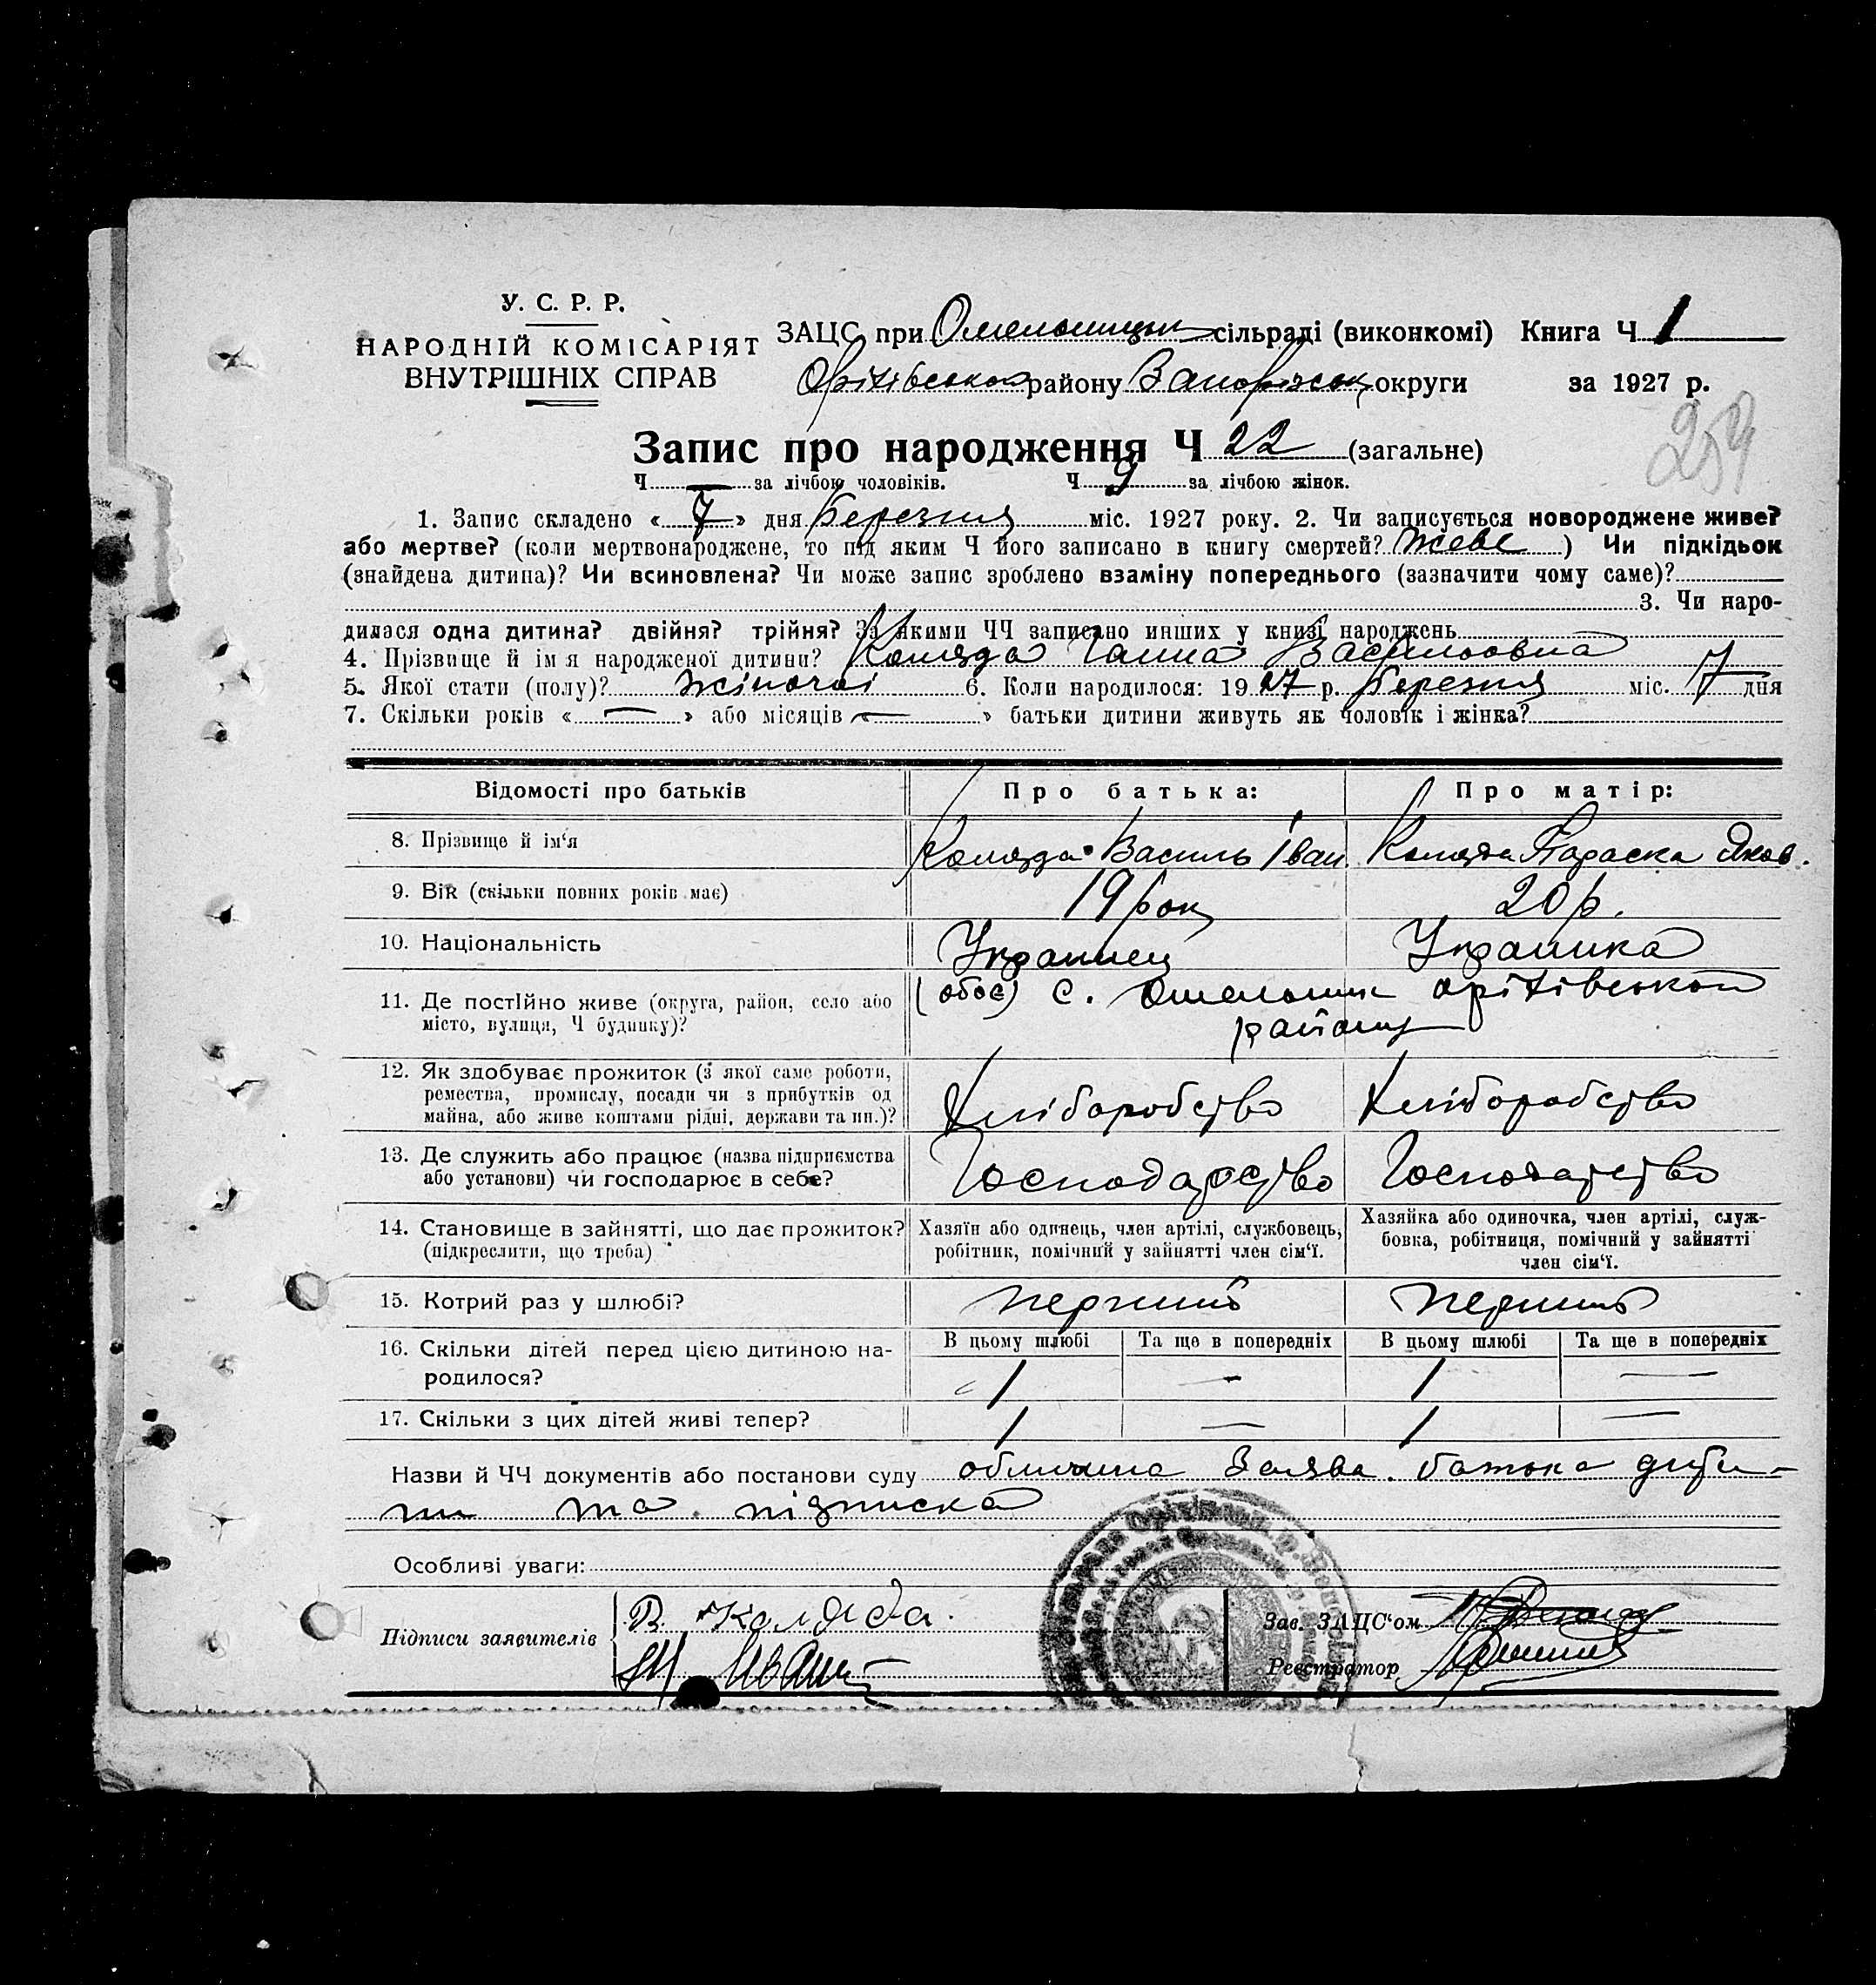 У. С. Р. Р.
НАРОДНІЙ КОМІСАРІЯТ
ВНУТРІШНІХ СПРАВ
ЗАЦС при Омельницьк сільраді (виконкомі) Книга Ч 1
Оріхівського району Запорізьк округи за 1927 р.
259
Запис про народження Ч 22 (загальне)
Ч — за лічбою чоловіків. Ч 9 за лічбою жінок.
1. Запис складено « 7 » дня Березня міс. 1927 року. 2. Чи записується новороджене живе?
або мертве? (коли мертвонароджене, то під яким Ч його записано в книгу смертей? живе ) Чи підкідьок
(знайдена дитина)? Чи всиновлена? Чи може запис зроблено взаміну попереднього (зазначити чому саме)?
3. Чи наро-
дилася одна дитина? двійня? трійня? За якими ЧЧ записано инших у книзі народжень
4. Прізвище й ім я народженої дитини? Коляда Ганна Васильовна
5. Якої стати (полу)? жіночоі 6. Коли народилося: 1927 р. березня міс. 7 дня
7. Скільки років « — » або місяців « — » батьки дитини живуть як чоловік і жінка?
Відомості про батьків Про батька: Про матір:
8. Прізвище й ім'я Коляда Василь Іван. Коляда Параска Яков.
9. Вік (скільки повних років має) 19 рок 20 р.
10. Національність Украинец Украинка
11. Де постійно живе (округа, район, село або (обоє) с. Омельник оріхівськои
місто, вулиця, Ч будинку)? району
12. Як здобуває прожиток (з якої саме роботи,
ремества, промислу, посади чи з прибутків од
майна, або живе коштами рідні, держави та ин.)? Хліборобство Хліборобство
13. Де служить або працює (назва підприємства
або установи) чи господарює в себе? Господарство Господарство
14. Становище в зайнятті, що дає прожиток? Хазяїн або одинець, член артілі, службовець, Хазяйка або одиночка, член артілі, служ-
(підкреслити, що треба) робітник, помічний у зайнятті член сім'ї. бовка, робітниця, помічний у зайнятті
член сім'ї.
15. Котрий раз у шлюбі? перший перший
16. Скільки дітей перед цією дитиною на- В цьому шлюбі Та ще в попередніх В цьому шлюбі Та ще в попередніх
родилося? 1 — 1 —
17. Скільки з цих дітей живі тепер? 1 — 1 —
Назви й ЧЧ документів або постанови суду обличина Заява батька дити-
ни та підписка
Особливі уваги:
Підписи заявителів В. Коляда.
Зав. ЗАЦС'ом
Реєстратор